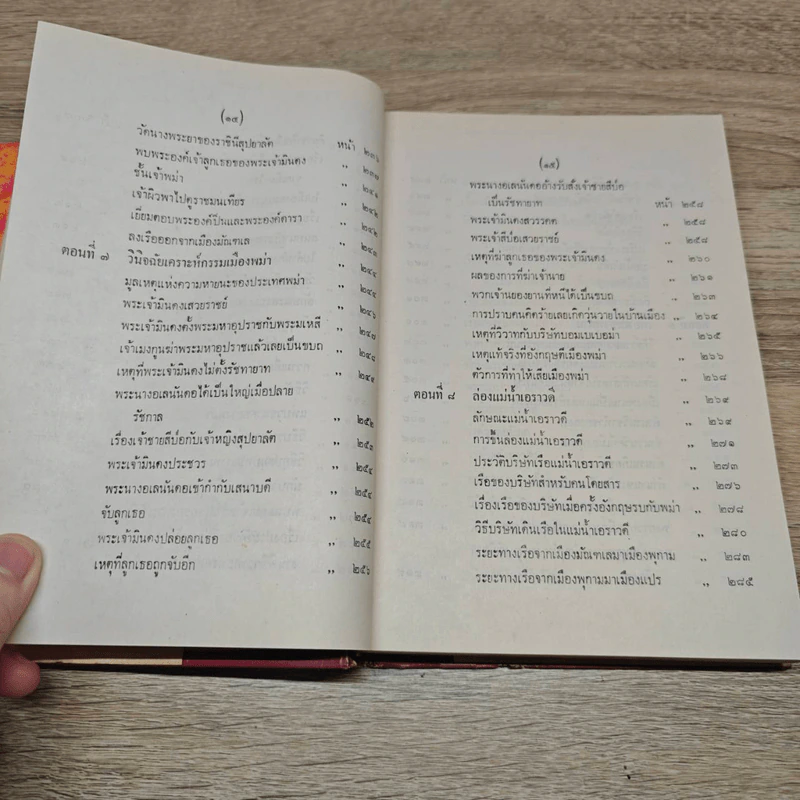 (๑๔)
วัดนางพระยาของราชินีสุปยาลัต หน้า ๒๓๖
พบพระองค์เจ้าลูกเธอของพระเจ้ามินดง ,,
ชั้นเจ้าพม่า ,, ๒๔๑
เจ้าผิวพาไปดูราชมนเทียร ,, ๒๔๒
เยี่ยมตอบพระองค์ปีนและพระองค์ดารา ,, ๒๔๒
ลงเรือออกจากเมืองมัณฑเล ,, ๒๔๓
ตอนที่ ๗ วินิจฉัยเคราะห์กรรมเมืองพม่า ,, ๒๔๔
มูลเหตุแห่งความหายนะของประเทศพม่า ,, ๒๔๔
พระเจ้ามินดงเสวยราชย์ ,, ๒๔๖
พระเจ้ามินดงตั้งพระมหาอุปราชกับพระมเหสี ,, ๒๔๗
เจ้าเมงกูนฆ่าพระมหาอุปราชแล้วเลยเป็นขบถ ,, ๒๔๘
เหตุที่พระเจ้ามินดงไม่ตั้งรัชทายาท ,, ๒๔๙
พระนางอเลนันดอได้เป็นใหญ่เมื่อปลาย
รัชกาล ,, ๒๕๒
เรื่องเจ้าชายสีป่อกับเจ้าหญิงสุปยาลัต ,, ๒๕๓
พระเจ้ามินดงประชวร ,, ๒๕๔
พระนางอเลนันดอเข้ากำกับเสนาบดี ,, ๒๕๔
จับลูกเธอ ,, ๒๕๔
พระเจ้ามินดงปล่อยลูกเธอ ,, ๒๕๕
เหตุที่ลูกเธอถูกจับอีก ,, ๒๕๖
(๑๕)
พระนางอเลนันดออ้างรับสั่งเจ้าชายสีป่อ
เป็นรัชทายาท หน้า ๒๕๘
พระเจ้ามินดงสวรรคต ,, ๒๕๘
พระเจ้าสีป่อเสวยราชย์ ,, ๒๕๘
เหตุที่ฆ่าลูกเธอของพระเจ้ามินดง ,, ๒๖๐
ผลของการที่ฆ่าเจ้านาย ,, ๒๖๑
พวกเจ้านยองยานที่หนีได้เป็นขบถ ,, ๒๖๓
การปราบคนคิดร้ายเลยเกิดวุ่นวายในบ้านเมือง ,, ๒๖๔
เหตุที่วิวาทกับบริษัทบอมเบเบอม่า ,, ๒๖๕
เหตุแท้จริงที่อังกฤษตีเมืองพม่า ,, ๒๖๖
ตัวการที่ทำให้เสียเมืองพม่า ,, ๒๖๘
ตอนที่ ๘ ล่องแม่น้ำเอราวดี ,, ๒๖๙
ลักษณะแม่น้ำเอราวดี ,, ๒๖๙
การขึ้นล่องแม่น้ำเอราวดี ,, ๒๗๑
ประวัติบริษัทเรือแม่น้ำเอราวดี ,, ๒๗๓
เรือของบริษัทสำหรับคนโดยสาร ,, ๒๗๖
เรื่องเรือของบริษัทเมื่อครั้งอังกฤษรบกับพม่า ,, ๒๗๘
วิธีบริษัทเดินเรือในแม่น้ำเอราวดี ,, ๒๘๐
ระยะทางเรือจากเมืองมัณฑเลมาเมืองพุกาม ,, ๒๘๓
ระยะทางเรือจากเมืองพุกามมาเมืองแปร ,, ๒๘๕